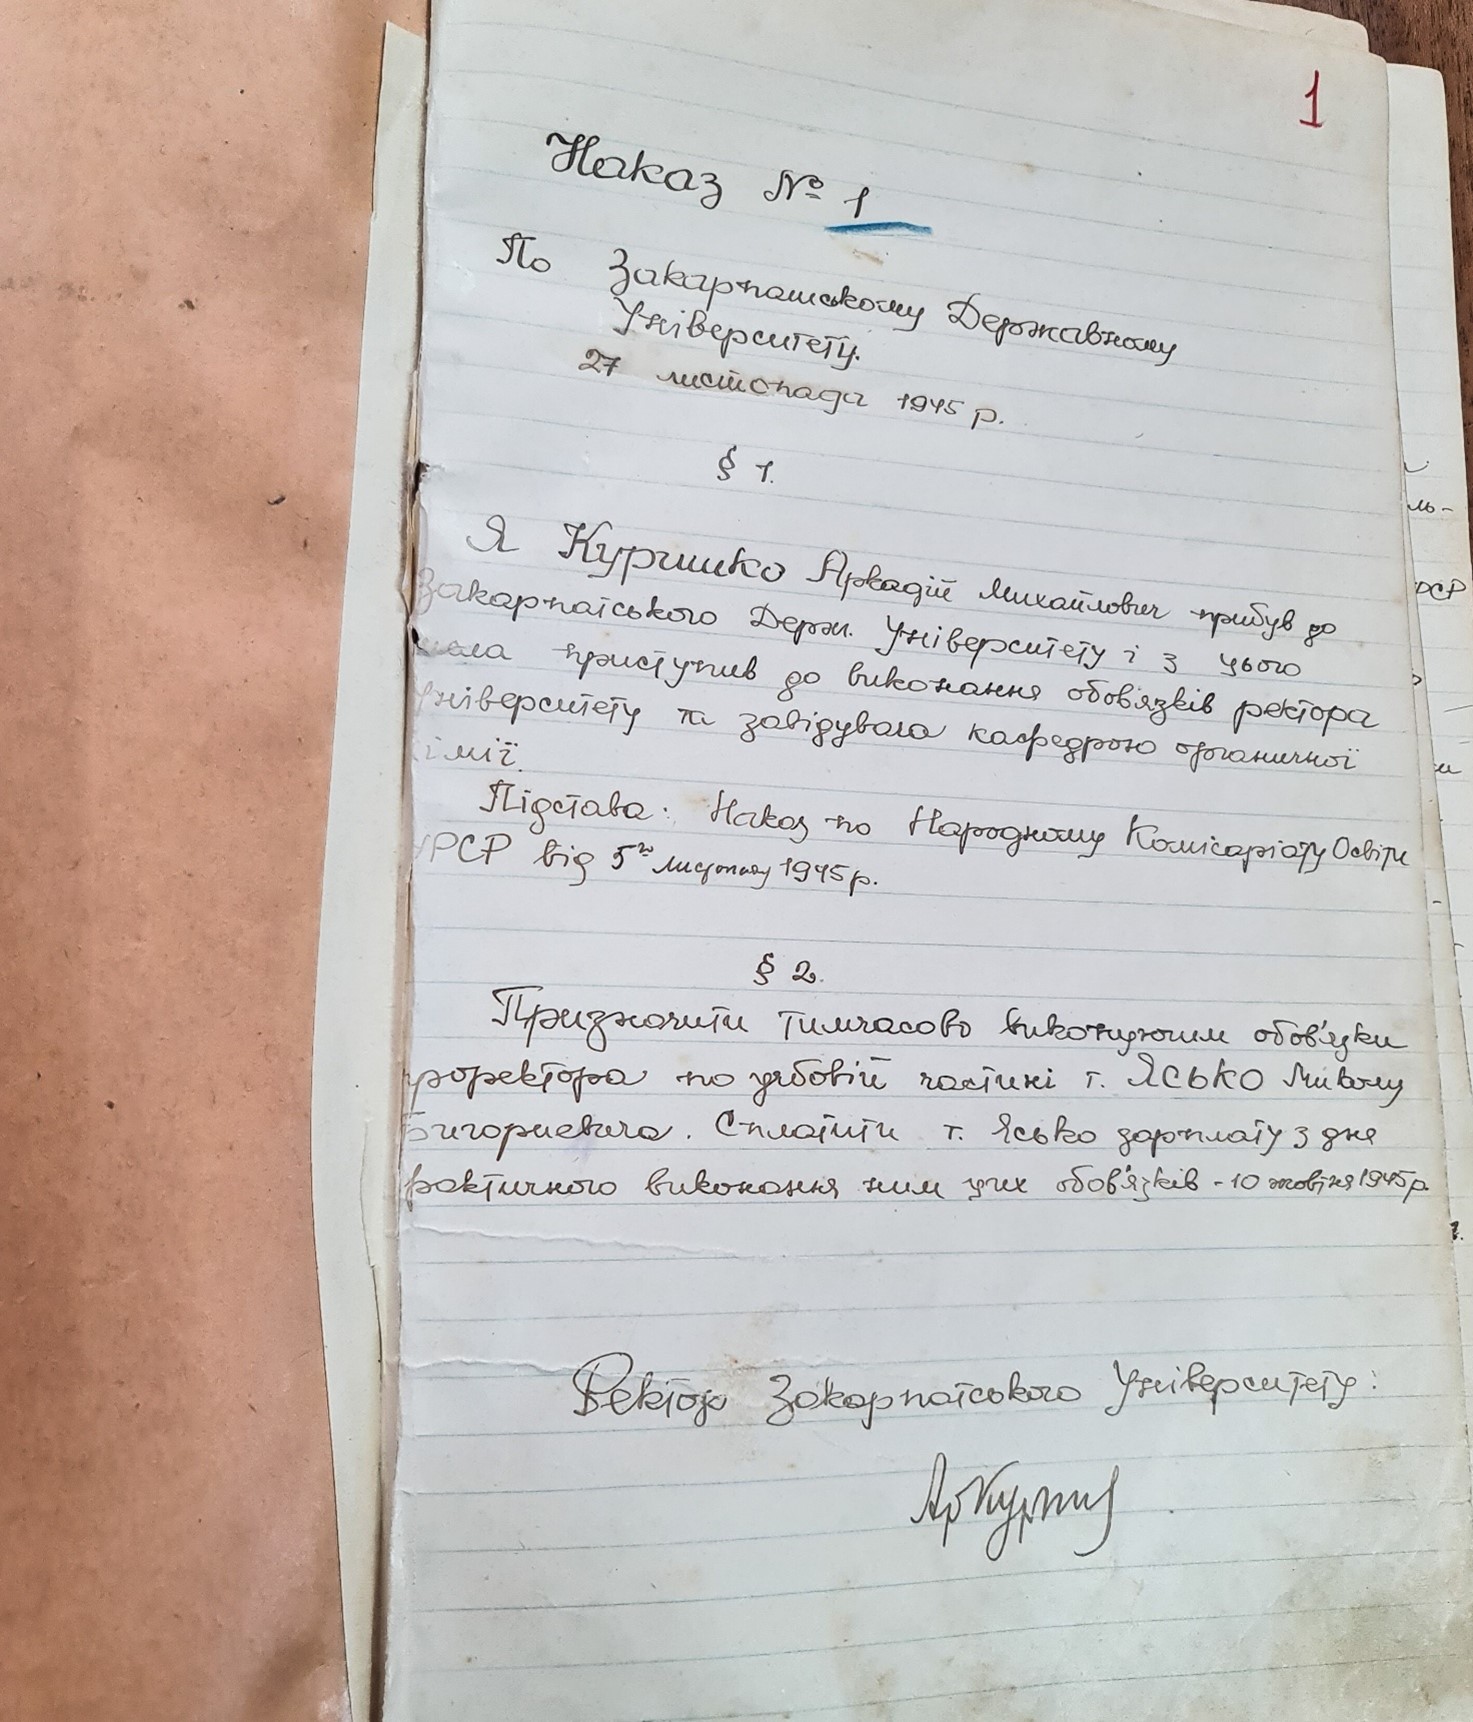 1
Наказ № 1
По Закарпатському Державному
Університету.
27 листопада 1945 р.
§ 1.
Я Куришко Аркадій Михайлович прибув до
Закарпатського Держ. Університету і з цього
числа приступив до виконання обов'язків ректора
Університету та завідувача кафедрою органичної
хімії.
Підстава: Наказ по Народному Комісаріату Освіти
УРСР від 5го листопаду 1945 р.
§ 2.
Призначити тимчасово виконуючим обов'язки
проректора по учбовій частині т. ЯСЬКО Миколу
Григориевича. Сплатити т. Ясько зарплату з дня
фактичного виконання ним цих обов'язків - 10 жовтня 1945 р.
Ректор Закарпатського Університету: